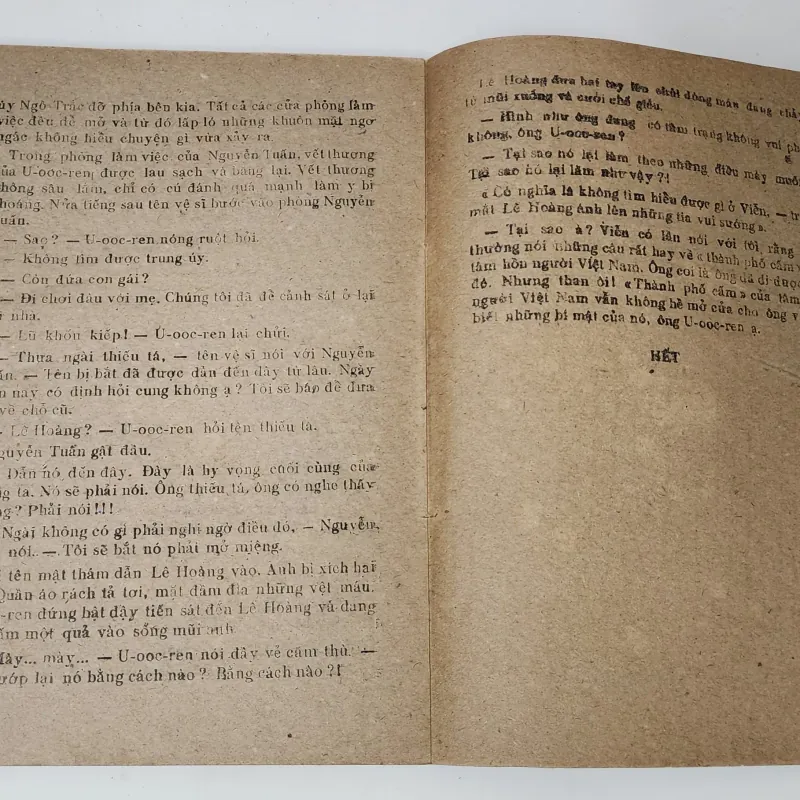 úy Ngô Trác đỡ phía bên kia. Tất cả các cửa phòng làm
việc đều để mở và từ đó lấp ló những khuôn mặt ngơ
ngác không hiểu chuyện gì vừa xảy ra.
Trong phòng làm việc của Nguyễn Tuấn, vết thương
của U-ooc-ren được lau sạch và băng lại. Vết thương
không sâu lắm, chỉ có cú đánh quá mạnh làm y bị
choáng. Nửa tiếng sau tên vệ sĩ bước vào phòng Nguyễn
Tuấn.
— Sao? — U-ooc-ren nóng ruột hỏi.
— Không tìm được trung úy.
— Còn đứa con gái?
— Đi chơi đâu với mẹ. Chúng tôi đã để cảnh sát ở lại
nhà.
— Lũ khốn kiếp! — U-ooc-ren lại chửi.
— Thưa ngài thiếu tá, — tên vệ sĩ nói với Nguyễn
ấn. — Tên bị bắt đã được dẫn đến đây từ lâu. Ngày
n nay có định hỏi cung không ạ? Tôi sẽ bảo để đưa
về chỗ cũ.
- Lê Hoàng? — U-ooc-ren hỏi tên thiếu tá.
guyễn Tuấn gật đầu.
Dẫn nó đến đây. Đây là hy vọng cuối cùng của
ng ta. Nó sẽ phải nói. Ông thiếu tá, ông có nghe thấy
ng? Phải nói!!!
Ngài không có gì phải nghi ngờ điều đó, — Nguyễn
nói. — Tôi sẽ bắt nó phải mở miệng.
tên mật thám dẫn Lê Hoàng vào. Anh bị xích hai
Quần áo rách tả tơi, mặt đầm đìa những vệt máu.
-ren đứng bật dậy tiến sát đến Lê Hoàng và đang
ấm một quả vào sống mũi anh.
Mày... mày... — U-ooc-ren nói đầy vẻ căm thù. —
ướp lại nó bằng cách nào? Bằng cách nào?!
Lê Hoàng đưa hai tay lên chùi dòng máu đang chảy
từ mũi xuống và cười chế giễu.
— Hình như ông đang có tâm trạng không vui ph
không, ông U-ooc-ren?
— Tại sao nó lại làm theo những điều mày muốn
Tại sao nó lại làm như vậy?!
«Có nghĩa là không tìm hiểu được gì ở Viễn, — tr
mắt Lê Hoàng ánh lên những tia vui sướng».
— Tại sao à? Viễn có lần nói với tôi rằng
thường nói những câu rất hay về «thành phố cấm»
tâm hồn người Việt Nam. Ông coi là ông đã đi được
đó. Nhưng than ôi! «Thành phố cấm» của tâm
người Việt Nam vẫn không hề mở cửa cho ông v
biết những bí mật của nó, ông U-ooc-ren ạ.
HẾT